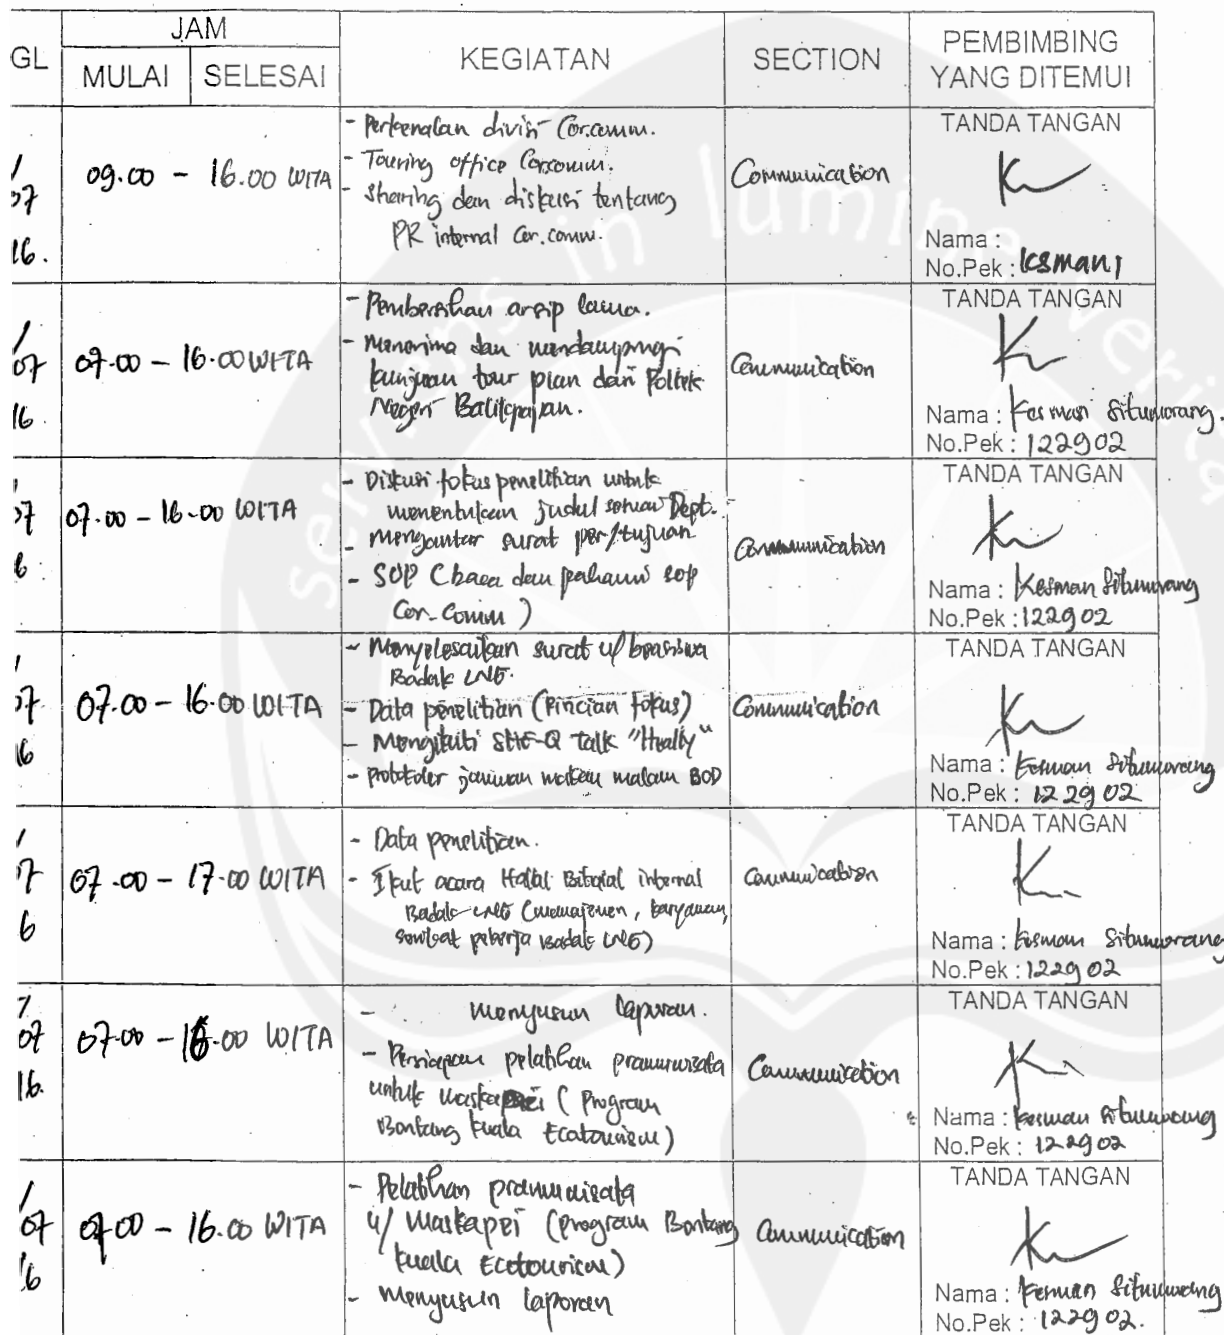 GL
JAM
MULAI SELESAI
KEGIATAN
SECTION
PEMBIMBING
YANG DITEMUI
/
07
16.
09.00 - 16.00 WITA
- Perkenalan divisi Cor.comm.
- Touring office Cor.comm.
- Sharing dan diskusi tentang
PR internal Cor.comm.
Communication
TANDA TANGAN
Nama :
No.Pek : Kesmani
/
07
16.
07.00 - 16.00 WITA
- Pembersihan arsip lama.
- Menerima dan mendampingi
kunjungan tour plan dari Poltek
Negeri Balikpapan.
Communication
TANDA TANGAN
Nama : Kesman Situmorang.
No.Pek : 122902
07
6
07.00 - 16.00 WITA
- Diskusi fokus penelitian untuk
menentukan judul sesuai Dept.
- Mengantar surat
- SOP (baca dan pahami sop
Cor-Comm)
Communication
TANDA TANGAN
Nama : Kesman Situmorang
No.Pek : 122902
/
07
16
07.00 - 16.00 WITA
- Menyelesaikan surat u/ beasiswa
Badak LNG.
- Data penelitian (Rincian fokus)
- Mengikuti SHE-Q Talk
- Protokoler jamuan makan malam BOD
Communication
TANDA TANGAN
Nama : Kesman Situmorang
No.Pek : 122902
/
07
6
07.00 - 17.00 WITA
- Data penelitian.
- Ikut acara Halal Bihalal internal
Badak LNG (manajemen, karyawan,
pekerja Badak LNG)
Communication
TANDA TANGAN
Nama : Kesman Situmorang
No.Pek : 122902
/
07
16.
07.00 - 16.00 WITA
- menyusun laporan.
- Persiapan pelatihan pramuwisata
untuk Maskapei (Program
Bontang Kuala Ecotourism)
Communication
TANDA TANGAN
Nama : Kesman Situmorang
No.Pek : 122902
/
07
16
07.00 - 16.00 WITA
- Pelatihan pramuwisata
u/ Maskapei (program Bontang
Kuala Ecotourism)
- Menyusun laporan
Communication
TANDA TANGAN
Nama : Kesman Situmorang
No.Pek : 122902.
servien in lumine verita